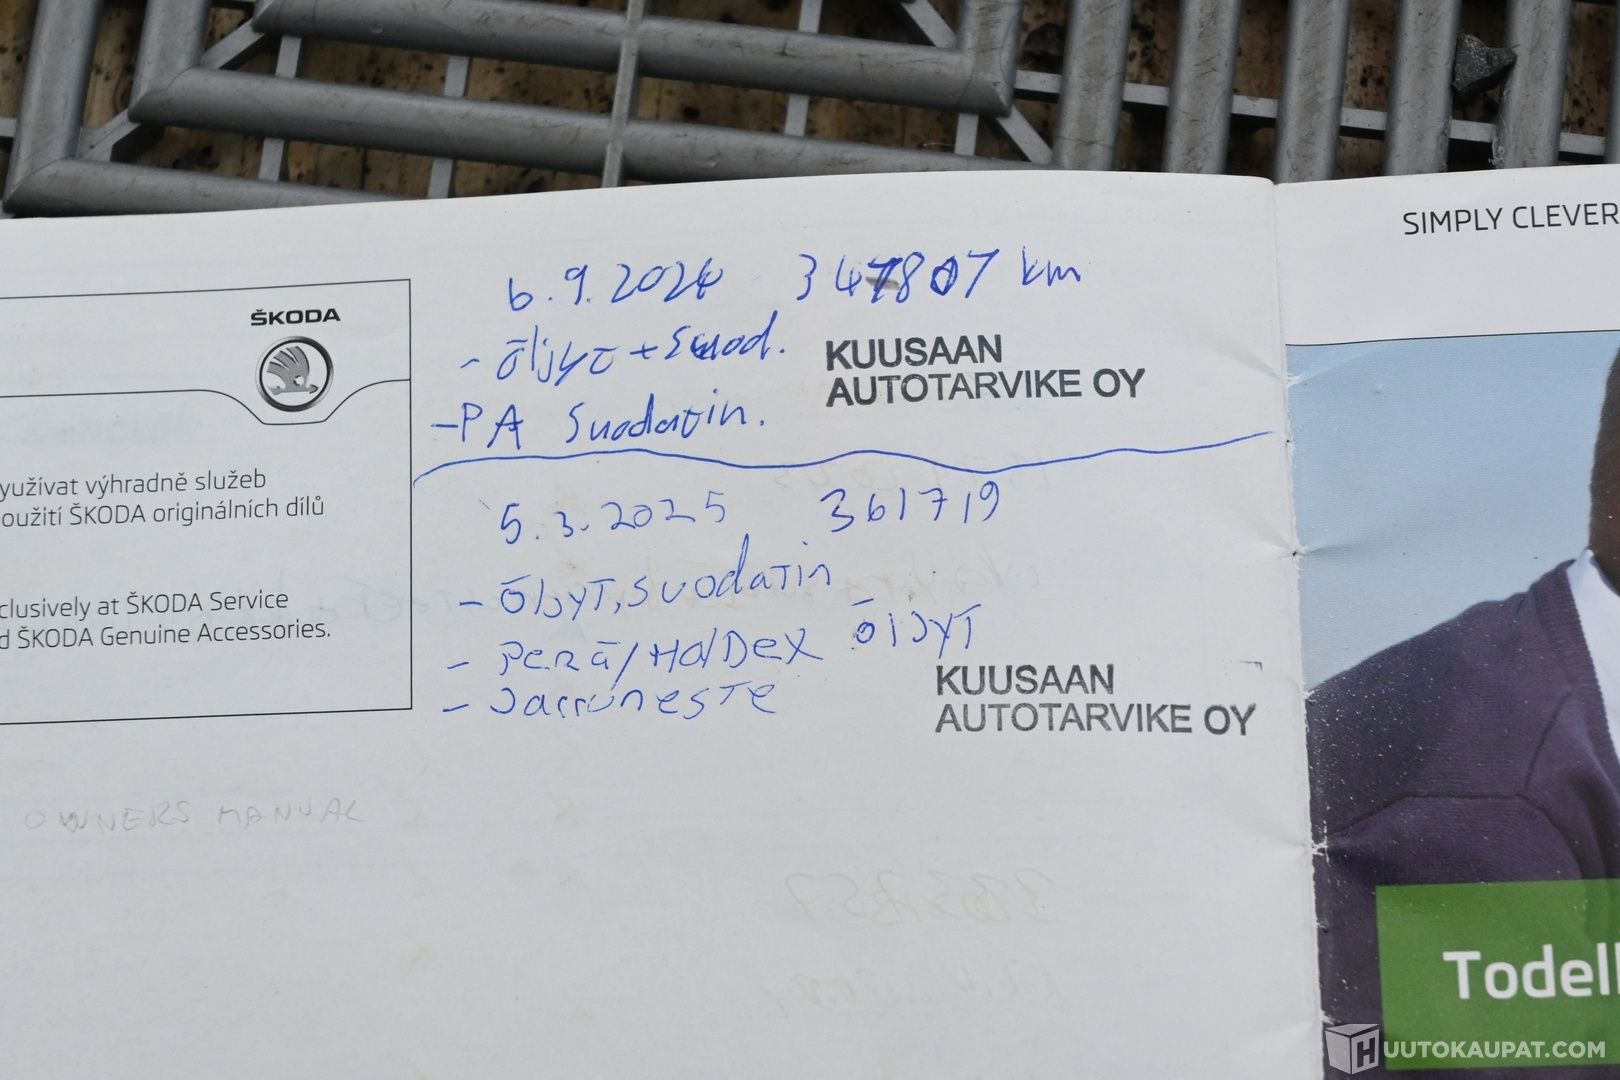 SIMPLY CLEVER
6.9.2024 347807 km
ŠKODA
- Öljyt + Suod.
KUUSAAN
AUTOTARVIKE OY
- PA Suodatin.
yužívat výhradně služeb
oužití ŠKODA originálních dílů
5.3.2025 361719
- ÖljyT, suodatin
clusively at ŠKODA Service
d ŠKODA Genuine Accessories.
- Perä/HalDex ÖljyT
- Jarruneste
KUUSAAN
AUTOTARVIKE OY
OWNERS MANUAL
Todell
HUUTOKAUPAT.COM